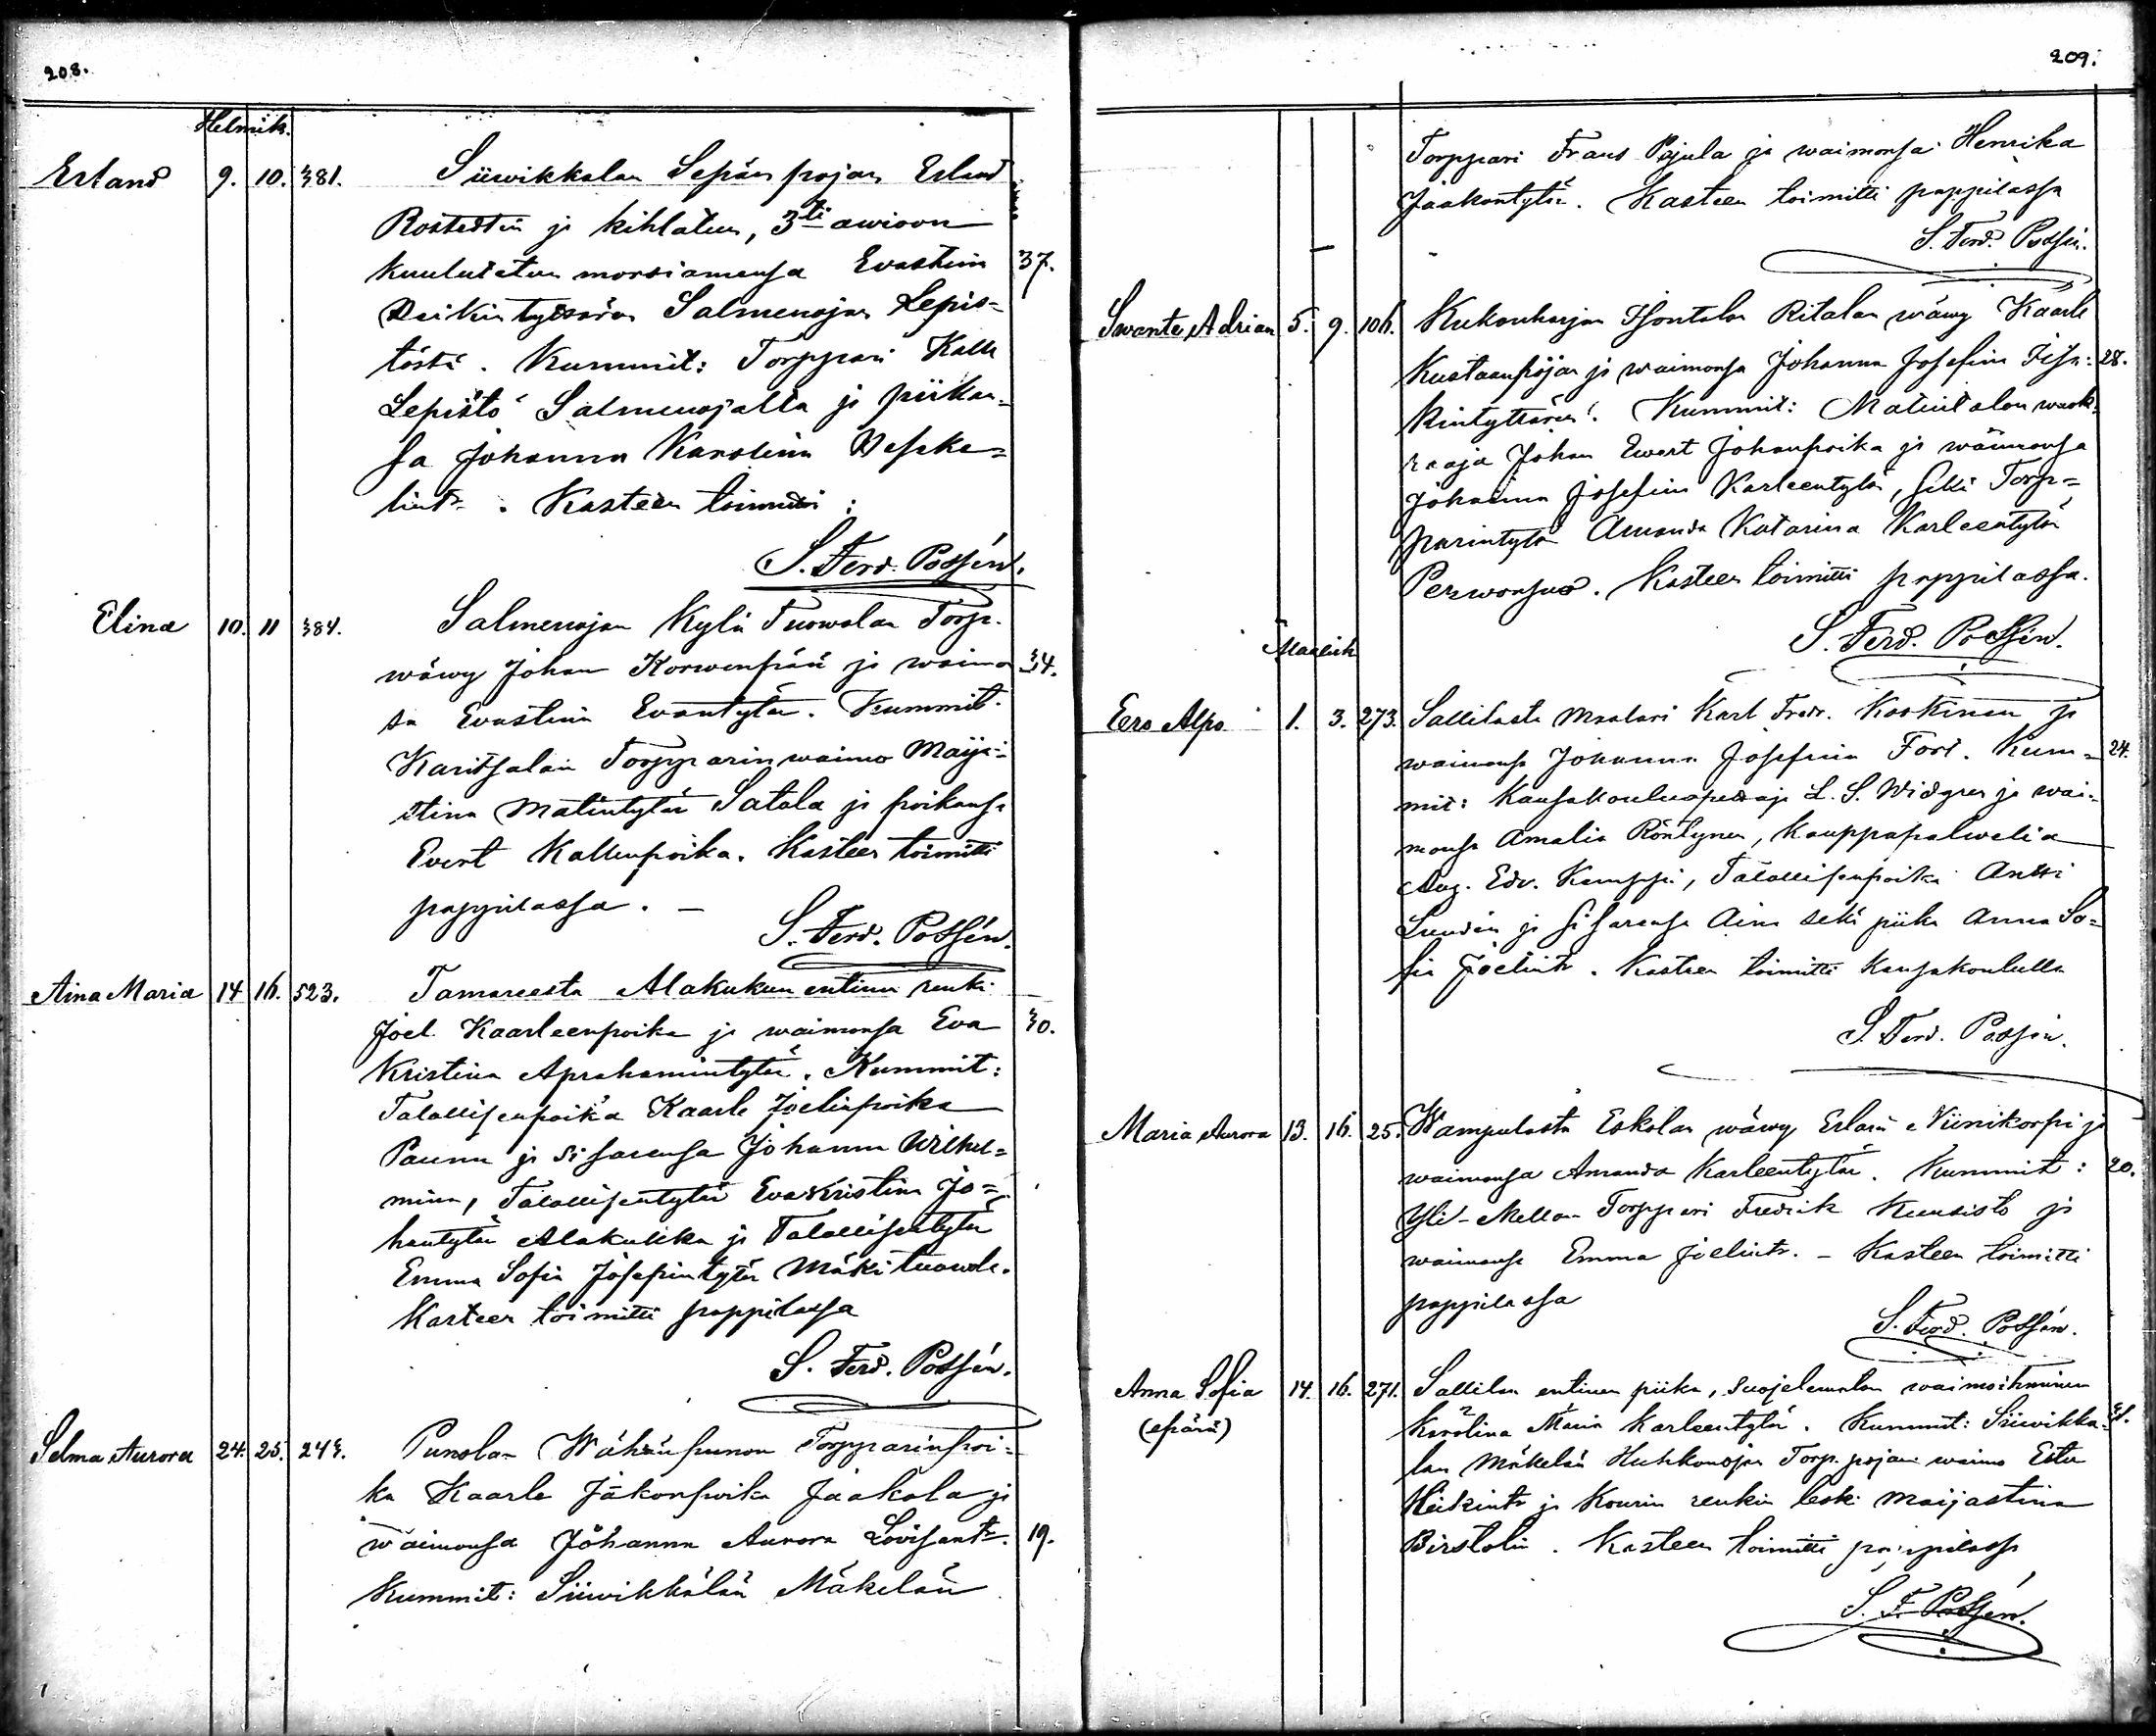 208.
Helmik.
Erland 9. 10. 381. Siiwikkalan Sepän pojan Erland
Rostedtin ja kihlatun, 3ti awioon
kuulutetun morsiamensa Evastiin 37.
Heikintyttären Salmenojan Lepis=
töstä. Kummit: Torppari Kalle
Lepistö Salmenojalta ja piikan=
sa Johanna Karolina
lint. . Kasteen toimitti :
S. Ferd. Possén.
Elina 10. 11 384. Salmenojan Kylä Tuowolan Torp.
wäwy Johan Korwenpää ja waimon 34.
sa Evastiina Evantytär. Kummit.
Karitsalan Torpparin waimo Maija
stina Matintytär Satola ja poikansa
Evert Kallenpoika. Kasteen toimitti
pappilassa. –
S. Ferd. Possén.
Aina Maria 14 16. 523. Tamareesta Alakukun entinen renki
Joel Kaarleenpoika ja waimonsa Eva 30.
Kristina Aprahamintytär. Kummit:
Talollisenpoika Kaarle Joelinpoika
Paunu ja sisarensa Johanna Wilhel=
mina, Talollisentytär Eva Kristina Jo=
hantytär Alakukku ja Talollisentytär
Emma Sofia Josefintytär Mäkituowola.
Kasteen toimitti pappilassa
S. Ferd. Possén.
Selma Aurora 24. 25. 243. Punolan Wähänpunon Torpparinpoi=
ka Kaarle Jäkonpoika Jaakola ja
waimonsa Johanna Aurora Lovisant. 19.
Kummit: Siiwikkälän Mäkelän
209.
Torppari Frans Pajula ja waimonsa Henrika
Jaakontytär. Kasteen toimitti pappilassa
S. Ferd. Possén.
Swante Adrian 5. 9. 106. Kukonharjan Isontalon Ritalan wäwy Kaarle
Kustaanpojan ja waimonsa Johanna Josefina Iisa= 28.
kintyttären. Kummit: Matintalon wuok=
raaja Johan Ewert Johanpoika ja waimonsa
Johanna Josefina Karleentytär, sekä Torp=
parintytär Amanda Katarina Karleentytär
. Kasteen toimitti pappilassa.
S. Ferd. Possén.
Maalisk
Eero Alpo 1. 3. 273. Sallilasta Maalari Karl Fredr. Koskinen ja
waimonsa Johanna Josefina Fors. Kum= 24.
mit: Kansakouluopettaja L. S. Widgren ja wai=
monsa Amalia Röntynen, Kauppapalwelia
Aug. Edv. Kamppi, Talollisenpoika Antti
Lundén ja sisarensa Aina sekä piika Anna So=
fia Joelintr. Kasteen toimitti Kansakoululla
S. Ferd. Possén.
Maria Aurora 13. 16. 25. Wampulasta Eskolan wäwy Erland Niinikorpi ja
waimonsa Amanda Karleentytär. Kummit: 20.
Yli-Mellon Torppari Fredrik Kuusisto ja
waimonsa Emma Joelintr. – Kasteen toimitti
pappilassa
S. Ferd. Possén.
Anna Sofia 14. 16. 271. Sallilan entinen piika, suojelematon waimoihminen
(epärä) Karolina Maria Karleentytär. Kummit: Siiwikka=
lan Mäkelän Huhkonojan Torp. pojan waimo Ester
Heikintr ja Kourin renkin leski Maijastina
Birstolin. Kasteen toimitti pappilassa
S. F. Possén.